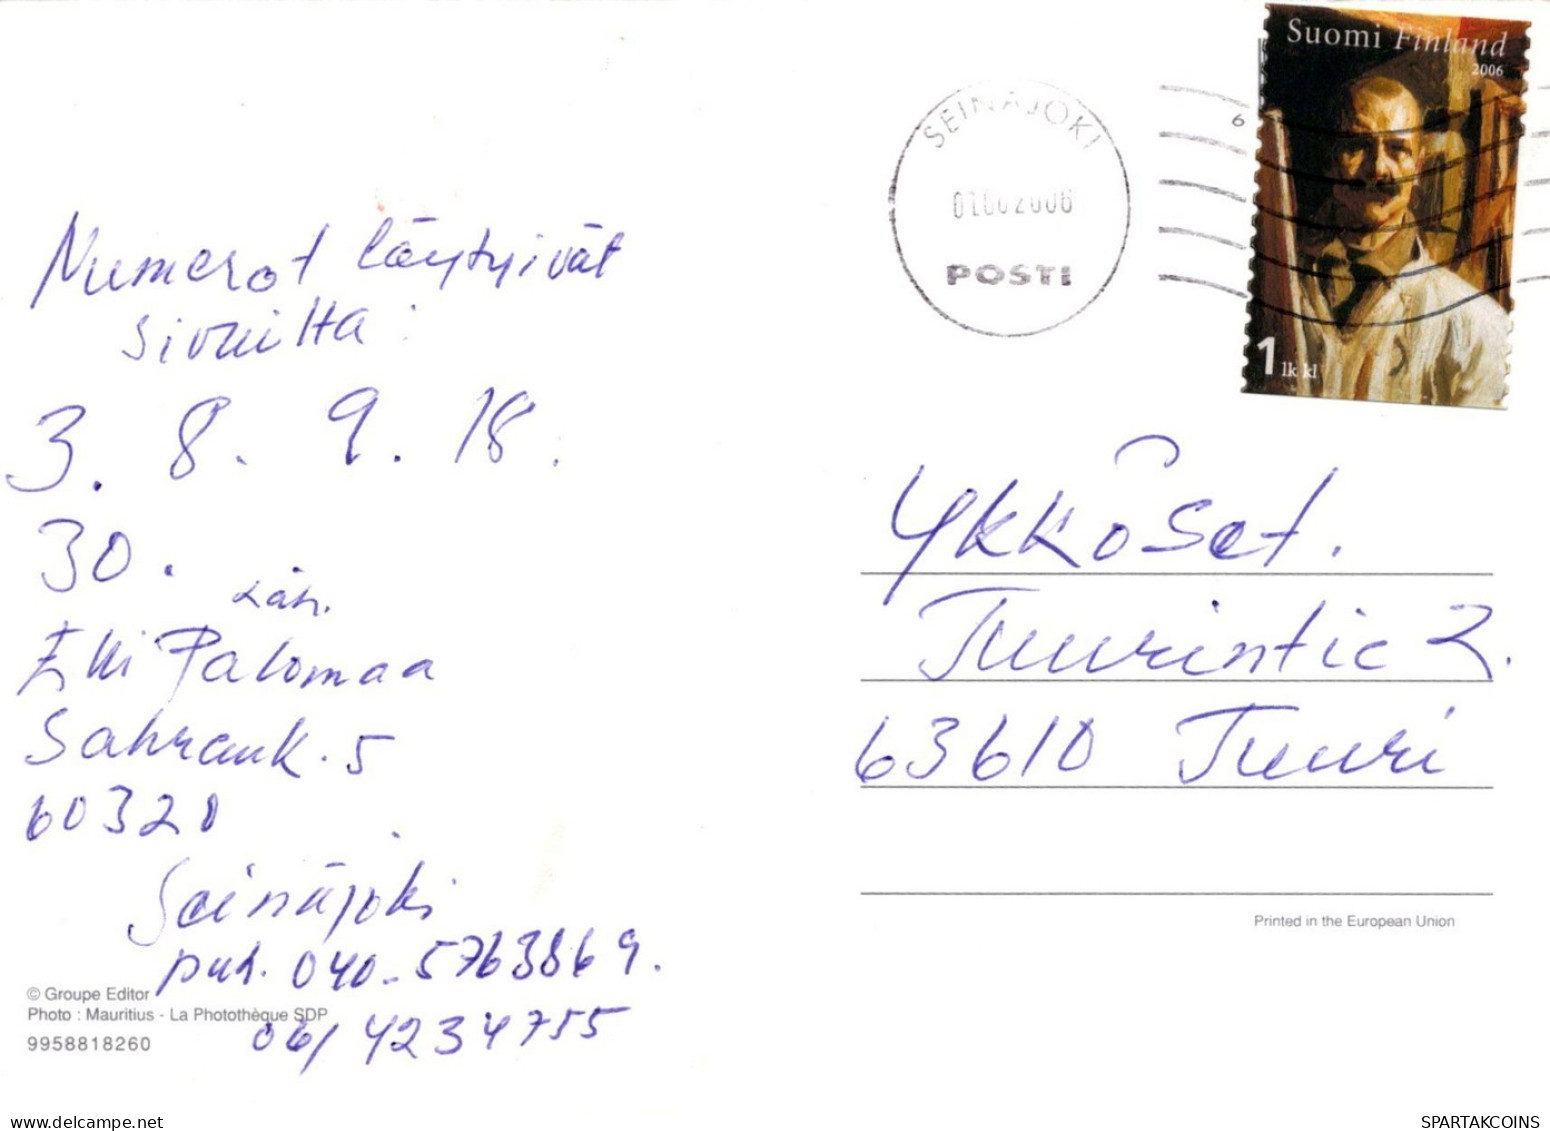 Numerot löytyivät
sivuilta:
3. 8. 9. 18.
30.
Läh.
Palomaa
5
60320
Seinäjoki
puh. 040-5763869.
06/4234755
© Groupe Editor
Photo : Mauritius - La Photothèque SDP
9958818260
SEINÄJOKI
POSTI
6
Suomi Finland
2006
1 lk kl
Ykköset.
Tuurintie 2.
63610 Tuuri
Printed in the European Union
www.delcampe.net
SPARTAKCOINS